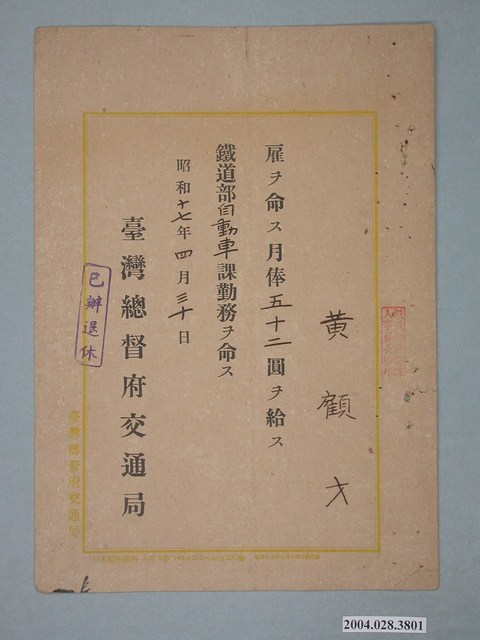 黄顧才
雇ヲ命ス月俸五十二圓ヲ給ス
鐵道部自動車課勤務ヲ命ス
昭和十七年四月三十日
臺灣總督府交通局
已辦退休
臺灣總督府交通局
2004.028.3801